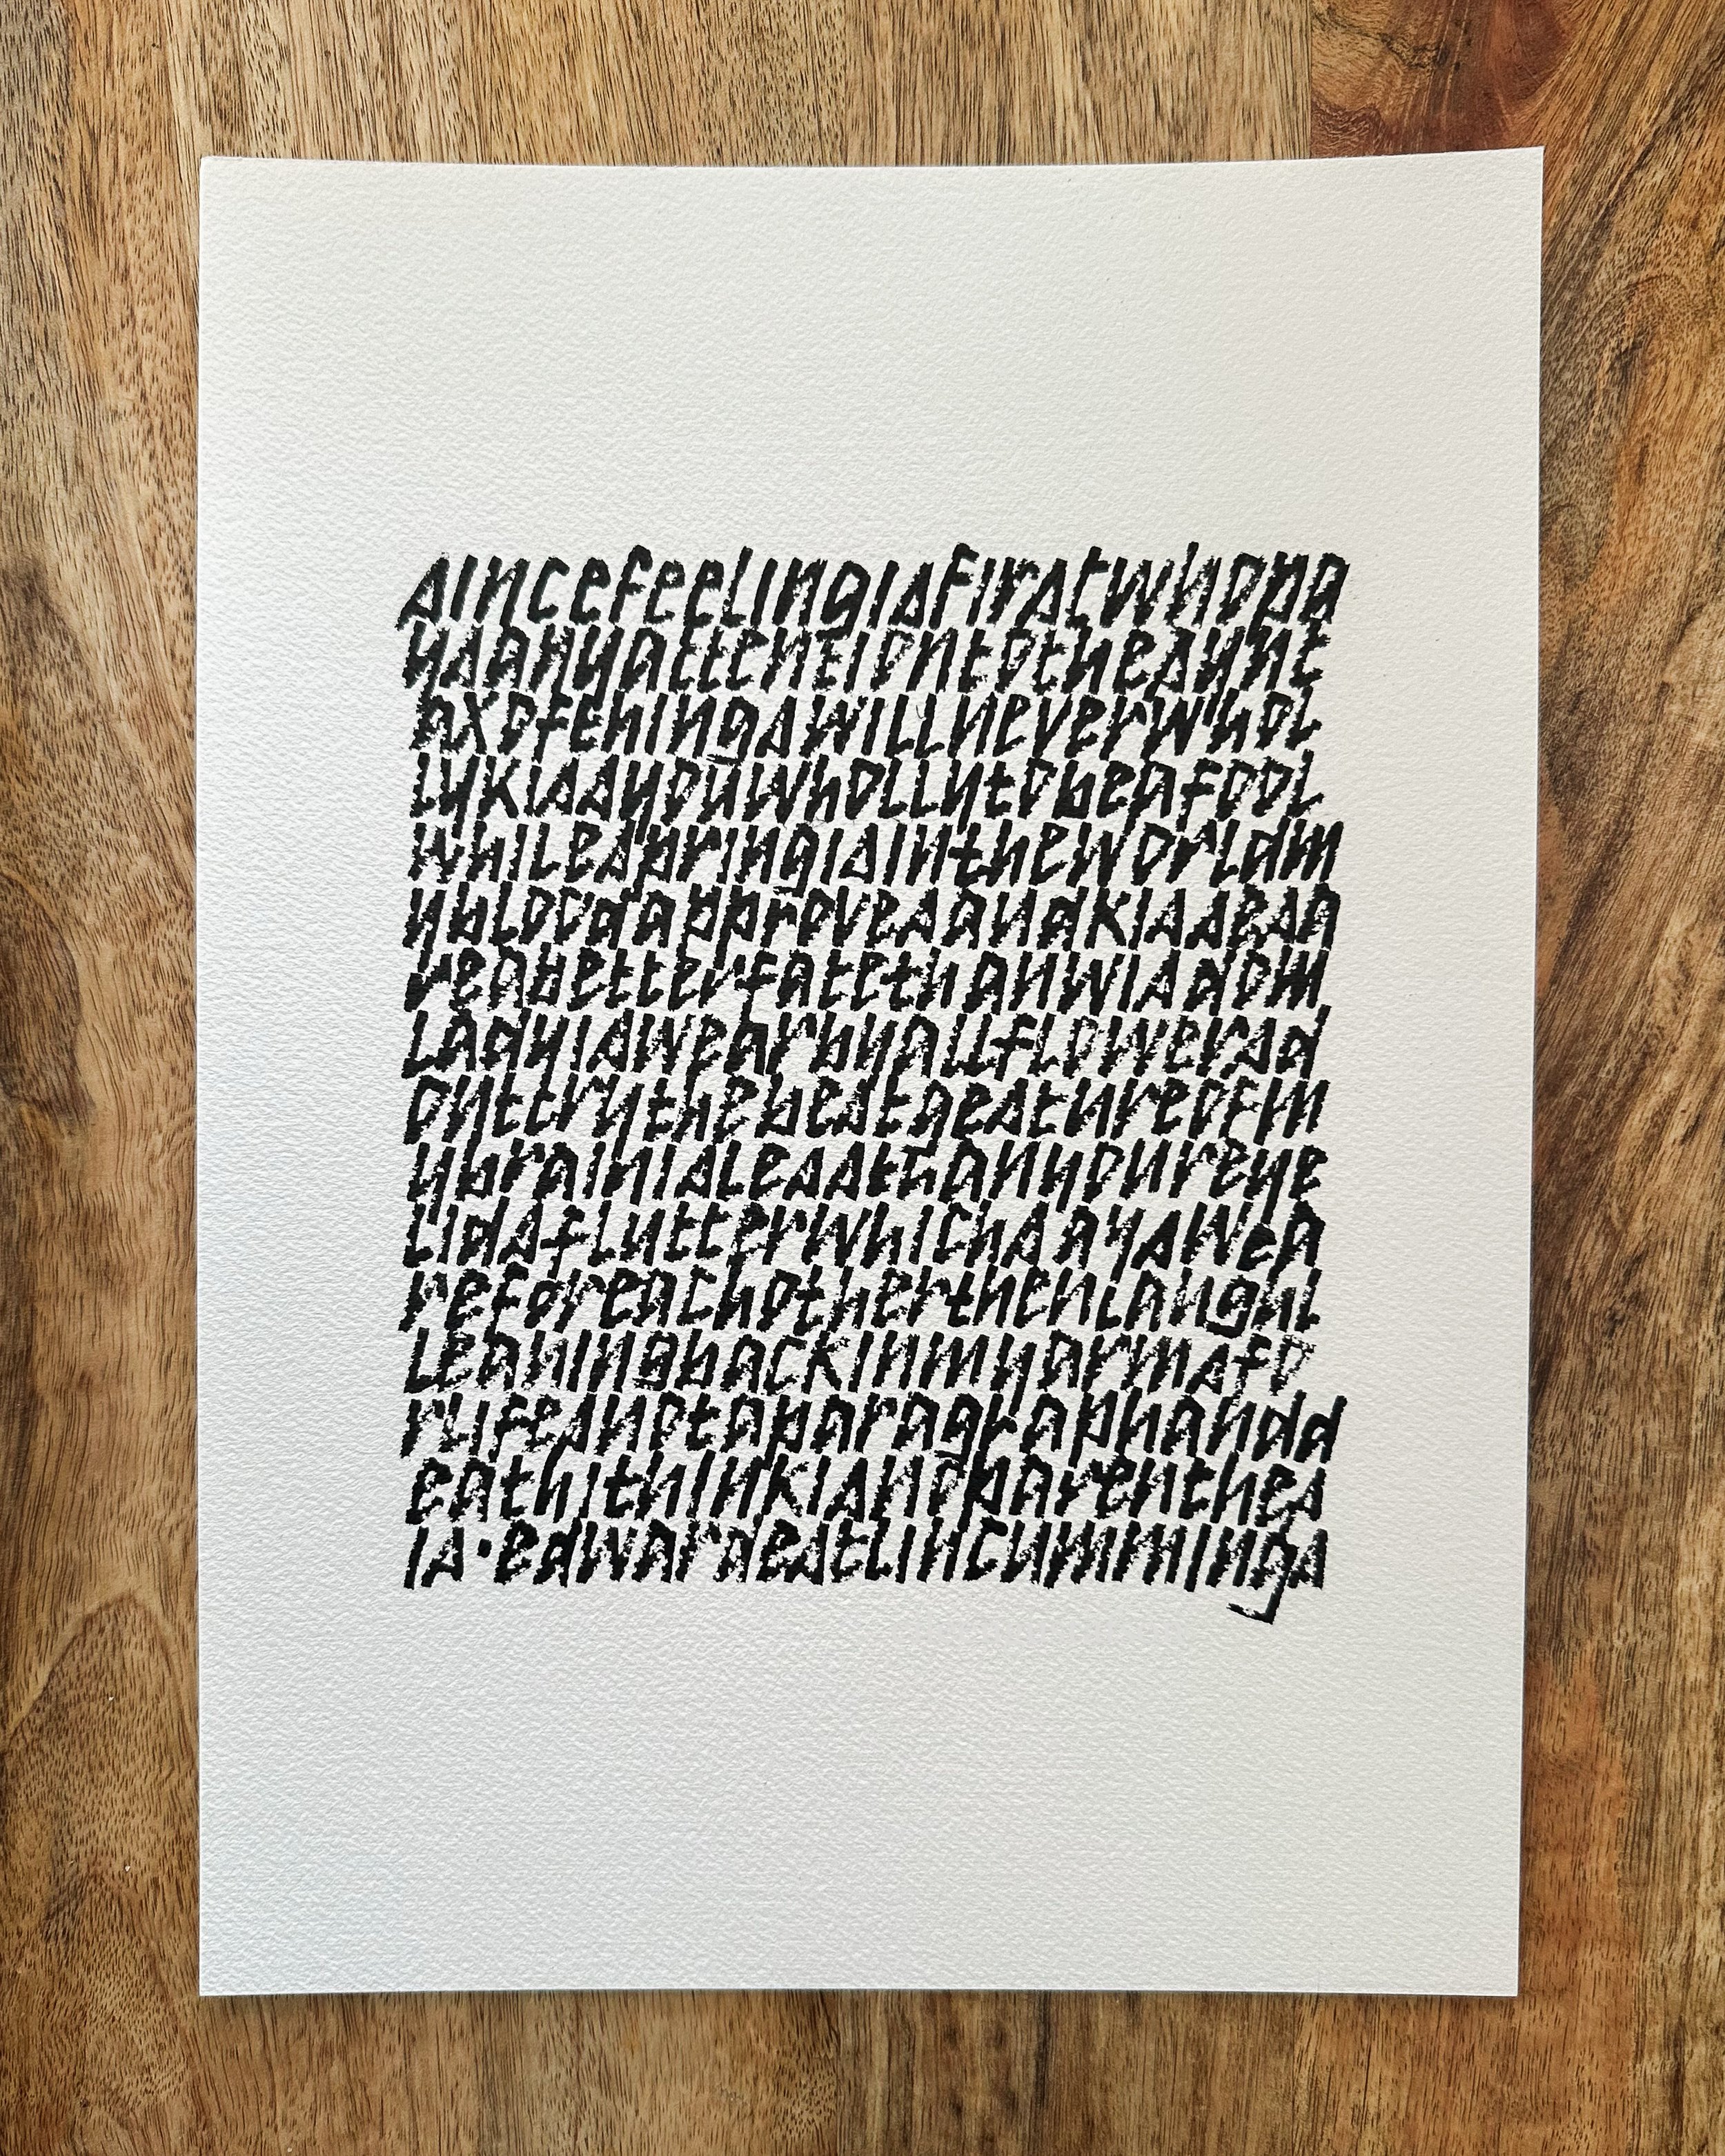 sincefeelingisfirstwhopa
ysanyattentiontothesynt
axofthingswillneverwhol
lykissyouwhollytobeafool
whilespringisintheworldm
ybloodapprovesandkissesa
reabetterfatethanwisdom
ladyiswearbyallflowersd
ontcrythebestgestureofm
ybrainislessthanyoureye
lidsflutterwhichsayswea
reforeachotherthenlaughl
leaningbackinmyarmsfo
rlifesnotaparagraphandd
eathithinkisnoparenthes
is·edwardestlincummings